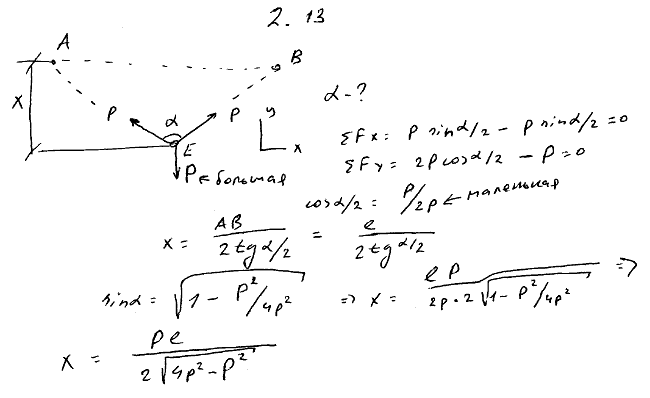 2.13
A
B
x
P
α
P
y
x
E
P ← большая
α - ?
ΣFx = P sin α/2 - P sin α/2 = 0
ΣFy = 2P cos α/2 - P = 0
cos α/2 = P/2p ← маленькая
x = AB / 2 tg α/2 = e / 2 tg α/2
sin α = √(1 - P²/4p²) => x = e P / 2p · 2 √(1 - P²/4p²) =>
x = P e / 2 √(4p² - P²)